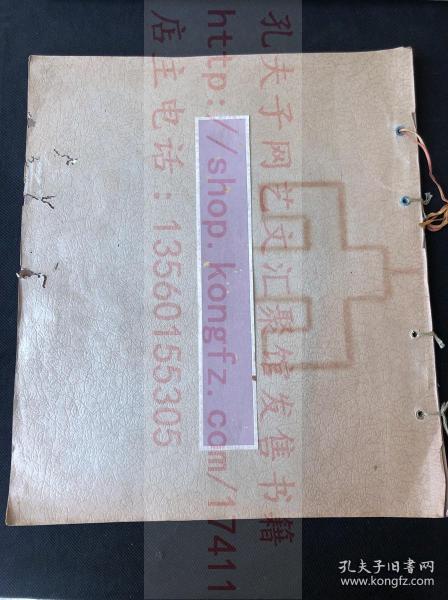 孔夫子网艺文汇聚馆发售书籍
http://shop.kongfz.com/17411
店主电话：13560155305
孔夫子旧书网
www.kongfz.com